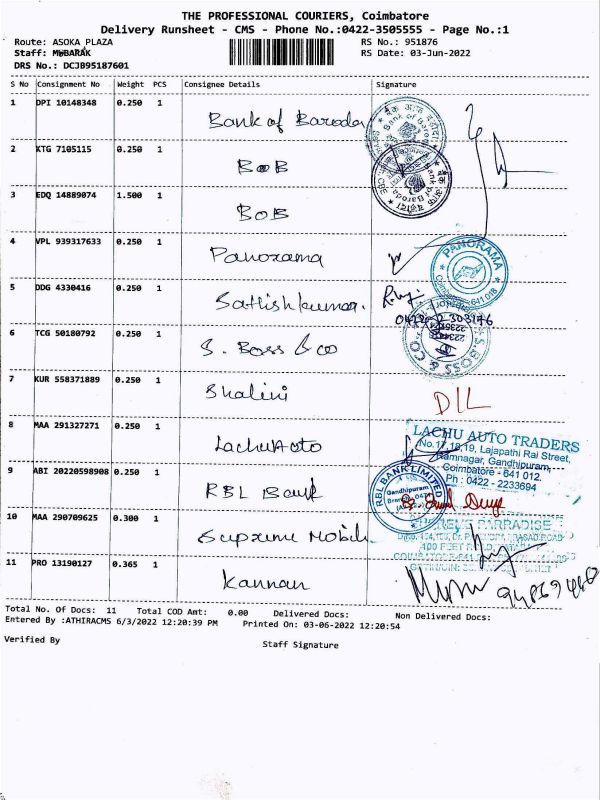 THE PROFESSIONAL COURIERS, Coimbatore
Delivery Runsheet - CMS - Phone No.:0422-3505555 - Page No.:1
Route: ASOKA PLAZA RS No.: 951876
Staff: MUBARAK RS Date: 03-Jun-2022
DRS No.: DCJB95187601
S No Consignment No Weight PCS Consignee Details Signature
1 DPI 10148348 0.250 1 Bank of Baroda
2 KTG 7105115 0.250 1 BOB
3 EDQ 14889074 1.500 1 BOB
4 VPL 939317633 0.250 1 Panorama
PANORAMA
Coimbatore-641 018
5 DDG 4330416 0.250 1 Sathishkumar.
6 TCG 50180792 0.250 1 S. Boss & co
S.BOSS & CO
7 KUR 558371889 0.250 1 Shalini
DIL
8 MAA 291327271 0.250 1 Lachu Auto
LACHU AUTO TRADERS
No.17,18,19, Lajapathi Rai Street,
Ramnagar, Gandhipuram,
Coimbatore - 641 012.
Ph : 0422 - 2233694
9 ABI 20220598908 0.250 1 RBL Bank
RBL BANK LIMITED
Gandhipuram
10 MAA 290709625 0.300 1 Supreme Mobile
11 PRO 13190127 0.365 1 Kannan
Total No. Of Docs: 11 Total COD Amt: 0.00 Delivered Docs: Non Delivered Docs:
Entered By :ATHIRACMS 6/3/2022 12:20:39 PM Printed On: 03-06-2022 12:20:54
Verified By Staff Signature